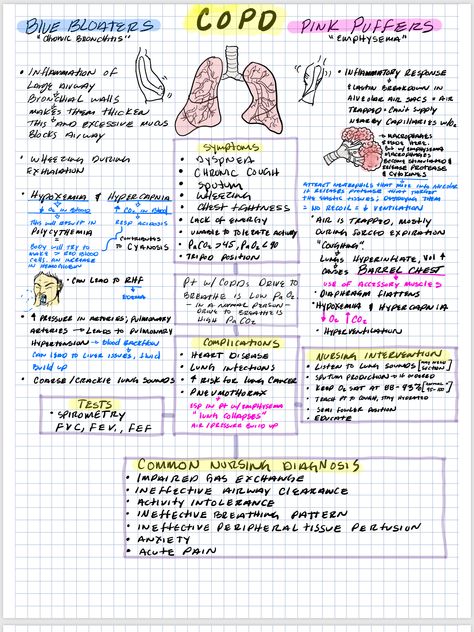 COPD
BLUE BLOATERS
"CHRONIC BRONCHITIS"
• INFLAMMATION OF
LARGE AIRWAY
BRONCHIAL WALLS
MAKES THEM THICKEN
THIS AND EXCESSIVE MUCUS
BLOCKS AIRWAY
• WHEEZING DURING
EXHALATION
• HYPOXEMIA & HYPERCAPNIA
↓ O₂ IN BLOOD
↑ CO₂ IN BLOOD
THIS RESULTS IN
POLYCYTHEMIA
=
BODY WILL TRY TO
MAKE > RED BLOOD
CELLS, AN INCREASE
IN HEMOGLOBIN
RESP ACIDOSIS
CONTRIBUTES
TO CYANOSIS
• CAN LEAD TO RHF
EDEMA
• ↑ PRESSURE IN ARTERIES; PULMONARY
ARTERIES → LEADS TO PULMONARY
HYPERTENSION → blood backflow
CAN LEAD TO LIVER ISSUES, fluid
build up
• COARSE/CRACKLE LUNG SOUNDS
PINK PUFFERS
"EMPHYSEMA"
• INFLAMMATORY RESPONSE
ELASTIN BREAKDOWN IN
ALVEOLAR AIR SACS → AIR
TRAPPED → CAN'T SUPPLY
NEARBY CAPILLARIES W/O₂
→ MACROPHAGES
RESIDE HERE.
BUT IN EMPHYSEMA
MACROPHAGES
BECOME STIMULATED &
RELEASE PROTEASE
& CYTOKINES
ATTRACT NEUTROPHILS THAT MOVE INTO ALVEOLI
& RELEASE PROTEASE THAT TARGET
THE ELASTIC TISSUES; DESTROYING THEM
= NO RECOIL = ↓ VENTILATION
• AIR IS TRAPPED, MOSTLY
DURING FORCED EXPIRATION
"COUGHING"
LUNGS HYPERINFLATE, VOL ↑
CAUSES BARREL CHEST
USE OF ACCESSORY MUSCLES
• DIAPHRAGM FLATTENS
• HYPOXEMIA & HYPERCAPNIA
↓ O₂ ↑ CO₂
HYPERVENTILATION
SYMPTOMS
• DYSPNEA
• CHRONIC COUGH
• SPUTUM
• WHEEZING
• CHEST TIGHTNESS
• LACK OF ENERGY
• UNABLE TO TOLERATE ACTIVITY
• PaCO₂ >45, PaO₂ <90
• TRIPOD POSITION
PT W/ COPDs DRIVE TO
BREATHE IS LOW PaO₂.
IN A NORMAL PERSON
DRIVE TO BREATHE IS
HIGH PaCO₂
COMPLICATIONS
• HEART DISEASE
• LUNG INFECTIONS
• ↑ RISK FOR LUNG CANCER
• PNEUMOTHORAX
ESP IN PT W/ EMPHYSEMA
"LUNG COLLAPSES"
AIR/PRESSURE BUILD UP
NURSING INTERVENTION
• LISTEN TO LUNG SOUNDS [MAY NEED SUCTION]
• SPUTUM PRODUCTION → IF ORDERED
• KEEP O₂ SAT AT 88-93% [NORMAL 95-100]
• TEACH PT TO COUGH, STAY HYDRATED
• SEMI FOWLER POSITION
• EDUCATE
TESTS
• SPIROMETRY
FVC, FEV₁, FEF
COMMON NURSING DIAGNOSIS
• IMPAIRED GAS EXCHANGE
• INEFFECTIVE AIRWAY CLEARANCE
• ACTIVITY INTOLERANCE
• INEFFECTIVE BREATHING PATTERN
• INEFFECTIVE PERIPHERAL TISSUE PERFUSION
• ANXIETY
• ACUTE PAIN